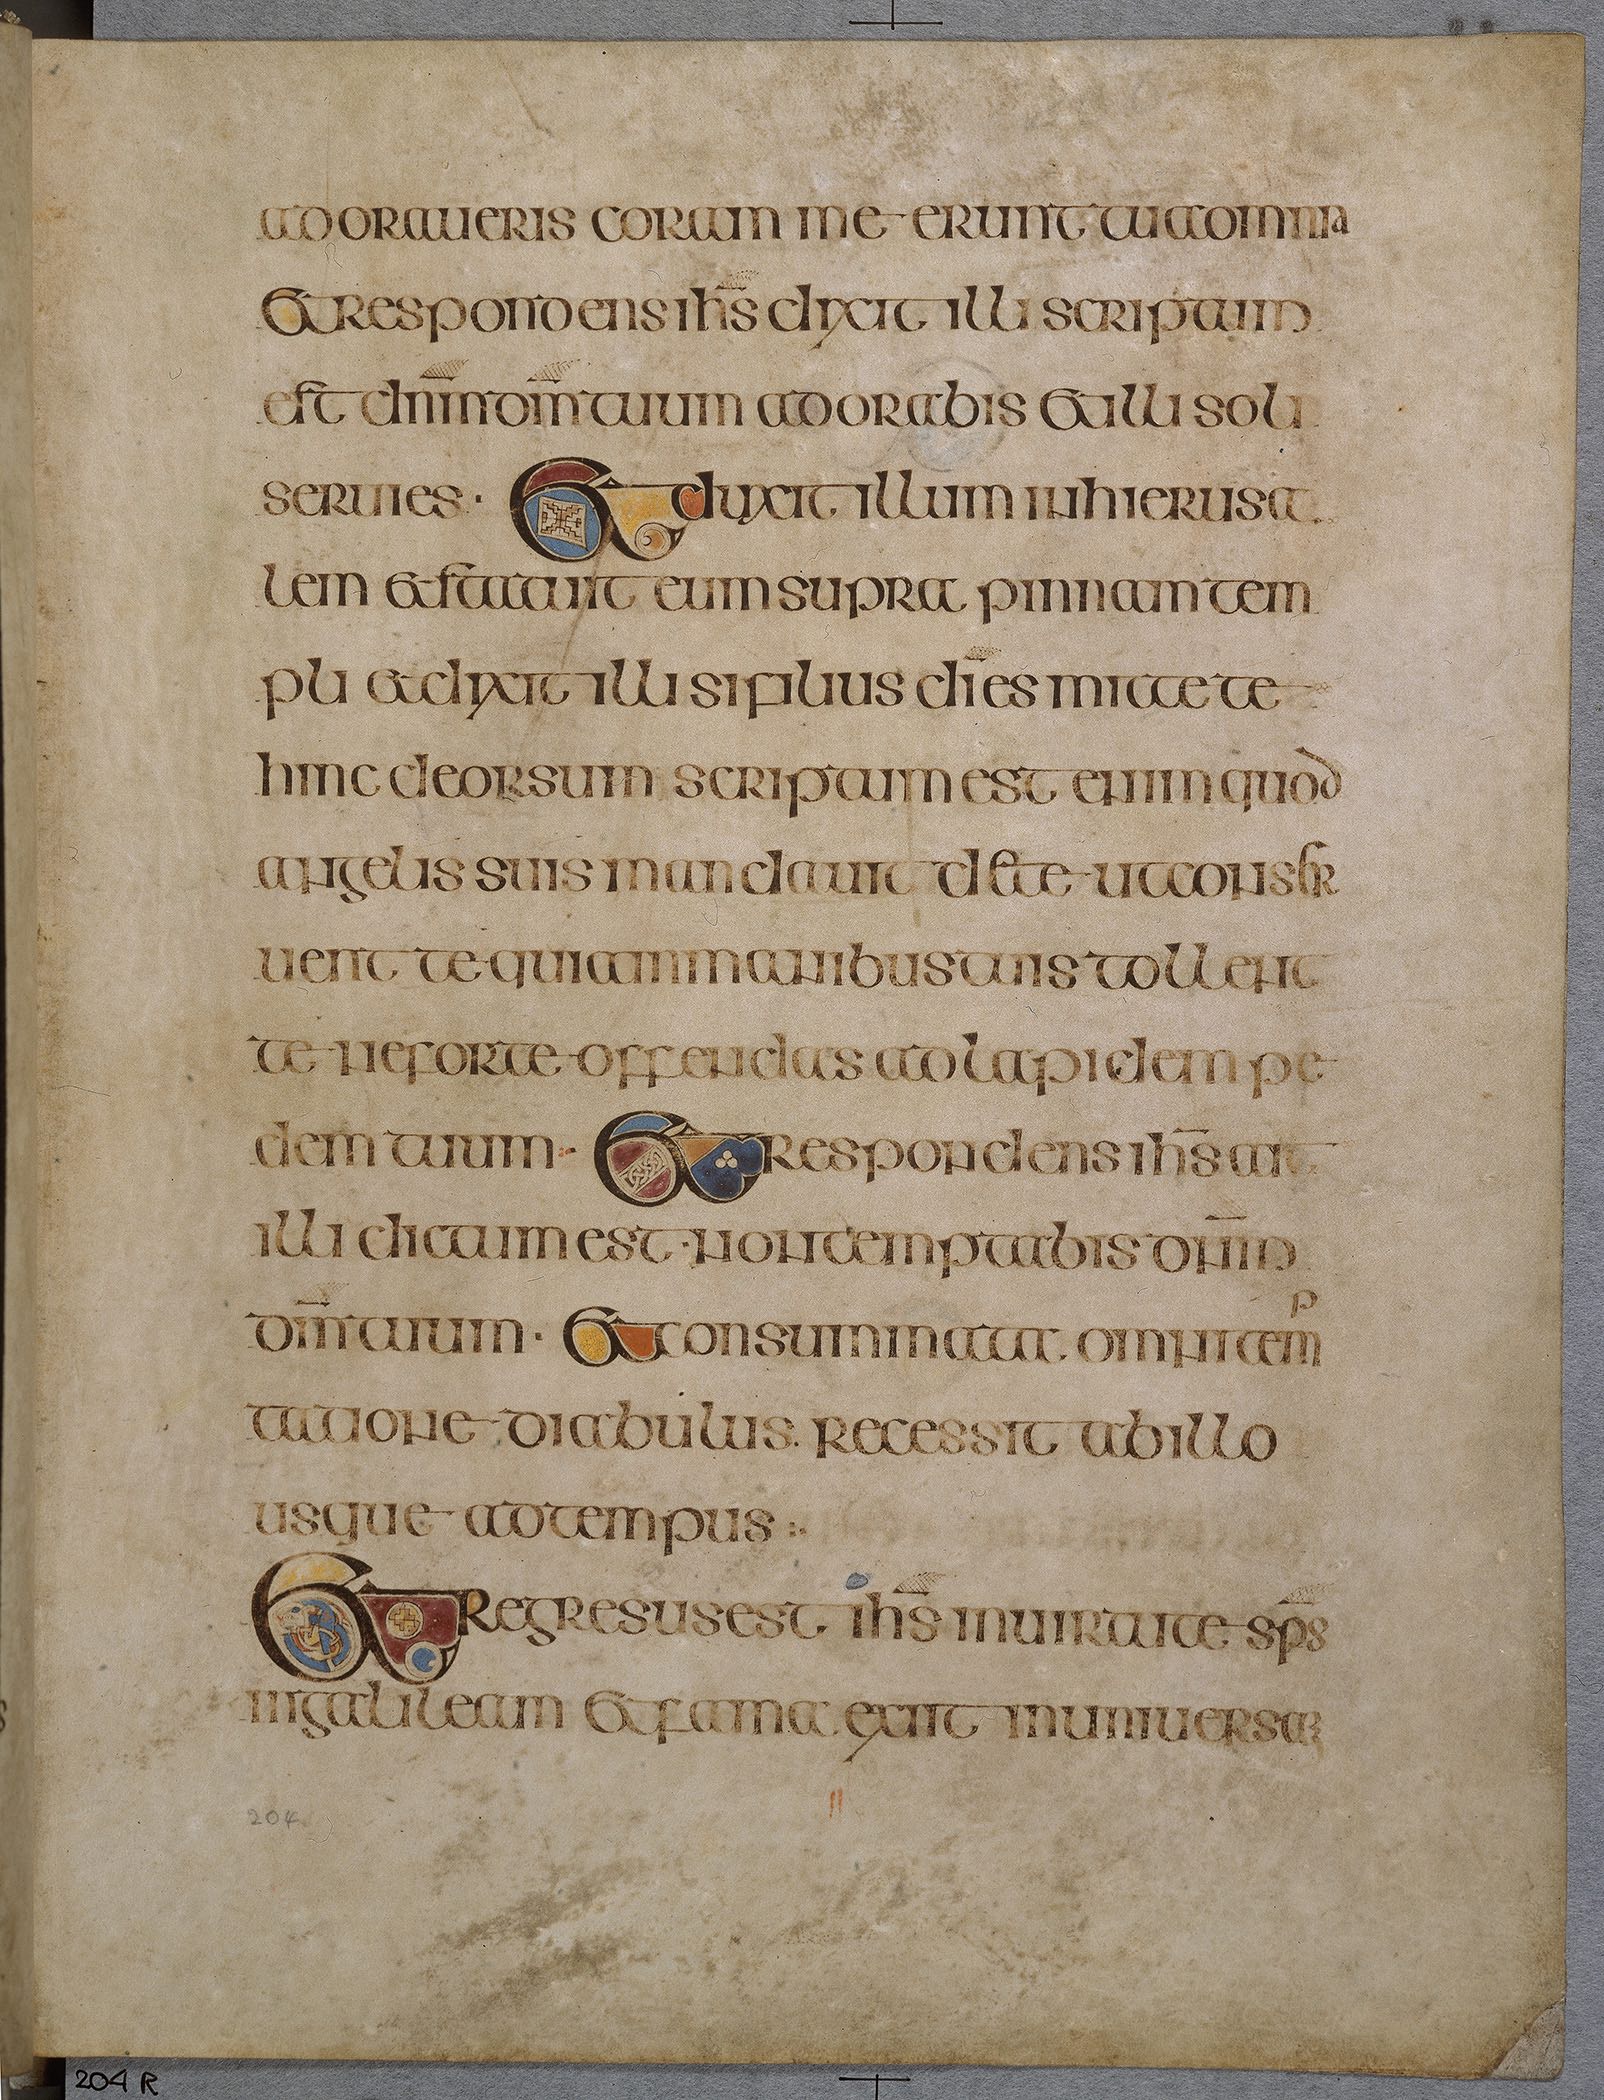 adoraueris coram me erunt tua omnia
Et respondens ihs̄ dixit illi scriptum
est dn̄m dm̄ tuum adorabis et illi soli
seruies · Et duxit illum in hierusa
lem et statuit eum supra pinnam tem
pli et dixit illi si filius dī es mitte te
hinc deorsum scriptum est enim quod
angelis suis mandauit de te ut conser
uent te quia in manibus tuis tollent
te ne forte offendas ad lapidem pe
dem tuum · Et respondens ihs̄ ait
illi dictum est · non temptabis dn̄m
dm̄ tuum · Et consummata omni tem
p
tatione diabulus recessit ab illo
usque ad tempus :·
Et regresus est ihs̄ in uirtute sps̄
in galileam et fama exiit in uniuersam
204
204 R